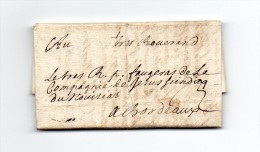 Au très Reverend
Le tres R. p. faugeras de La
Compagnie de Jesus
du Noviciat
a Bordeaux